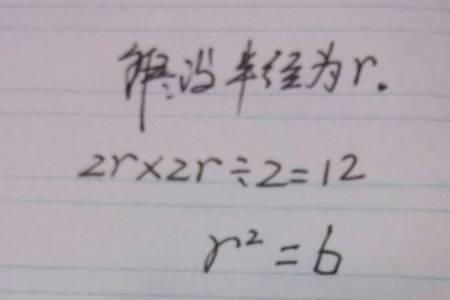 解:设半径为r.
2r×2r÷2=12
r²=6